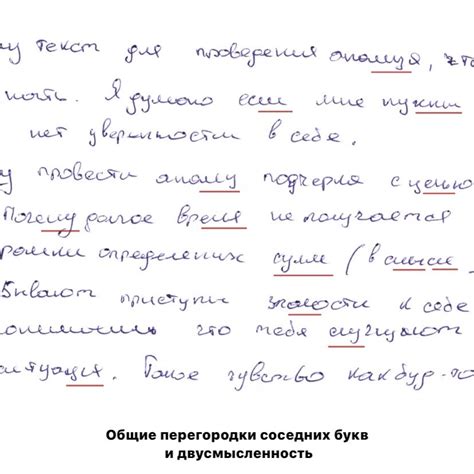 текст для проведения анализа, что
ность. Я думаю если мне нужны
нет уверенности в себе.
провести анализ подчерка с целью
Почему долгое время не получается
определенных сумм (в смысле
бывают приступы злости к себе
что тебя мучают
ситуация. Такое чувство как буд-то
Общие перегородки соседних букв
и двусмысленность